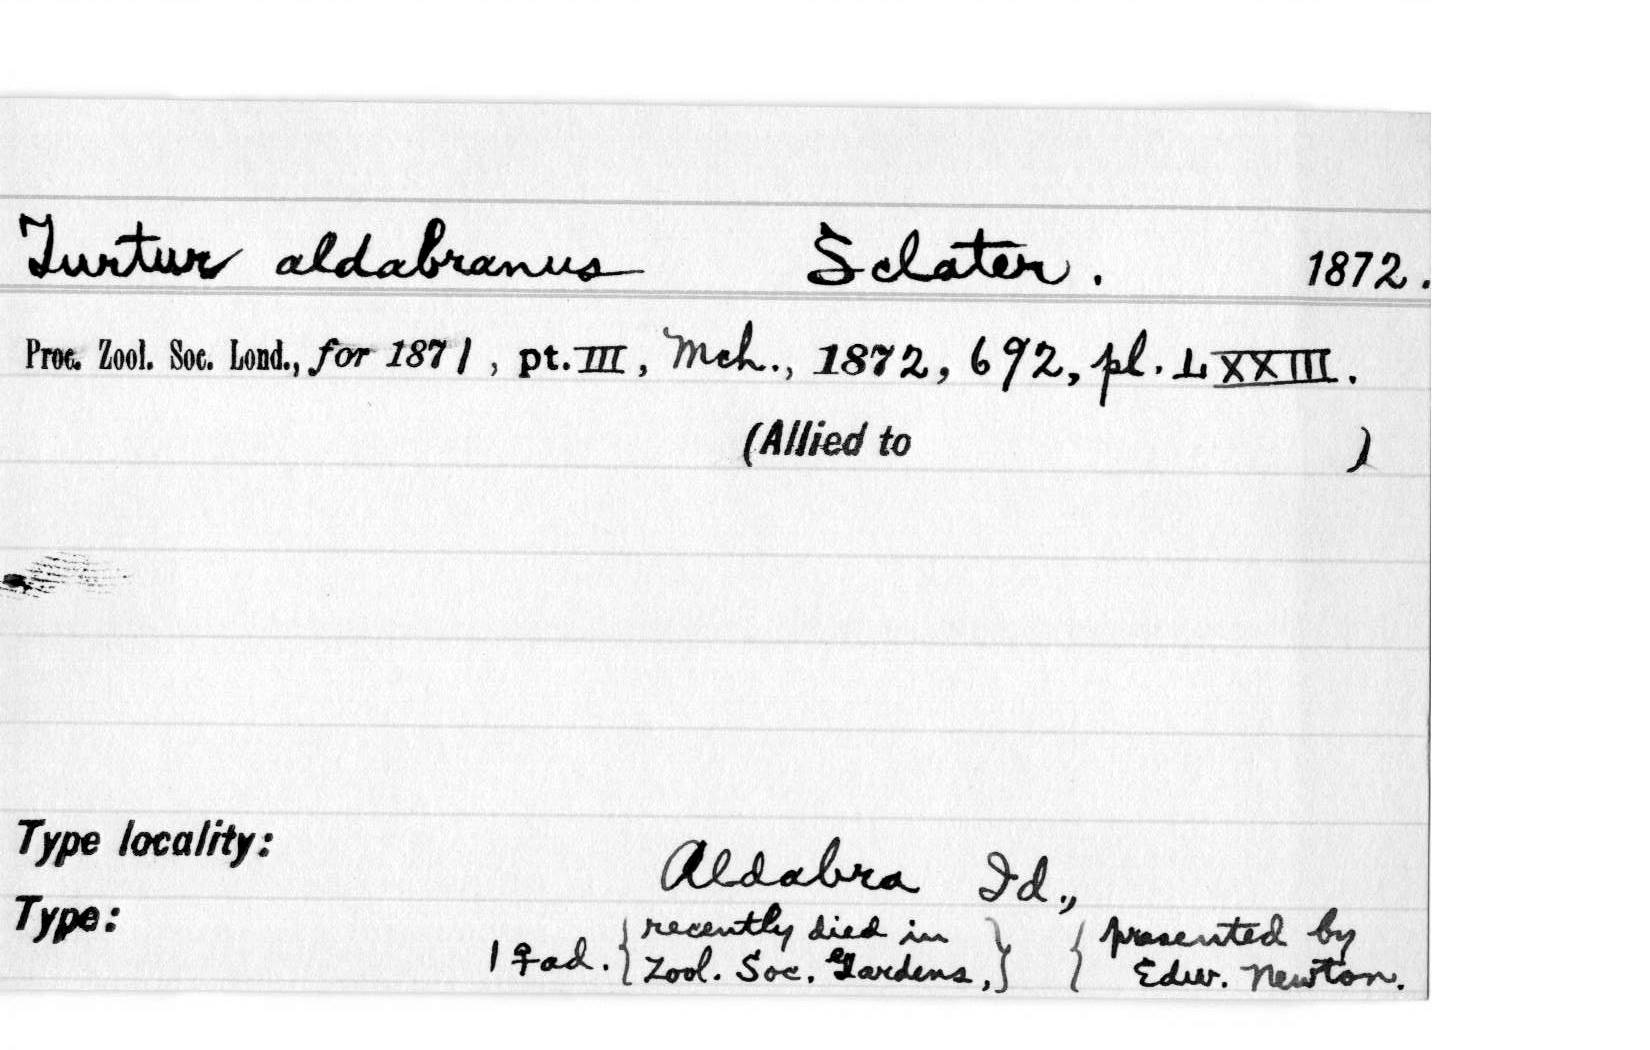 Turtur aldabranus Sclater. 1872.
Proc. Zool. Soc. Lond., for 1871, pt. III, Mch., 1872, 692, pl. LXXIII.
(Allied to )
Type locality:
Aldabra Id.,
Type:
1 ♀ ad. { recently died in } { presented by
Zool. Soc. Gardens, Edw. Newton.